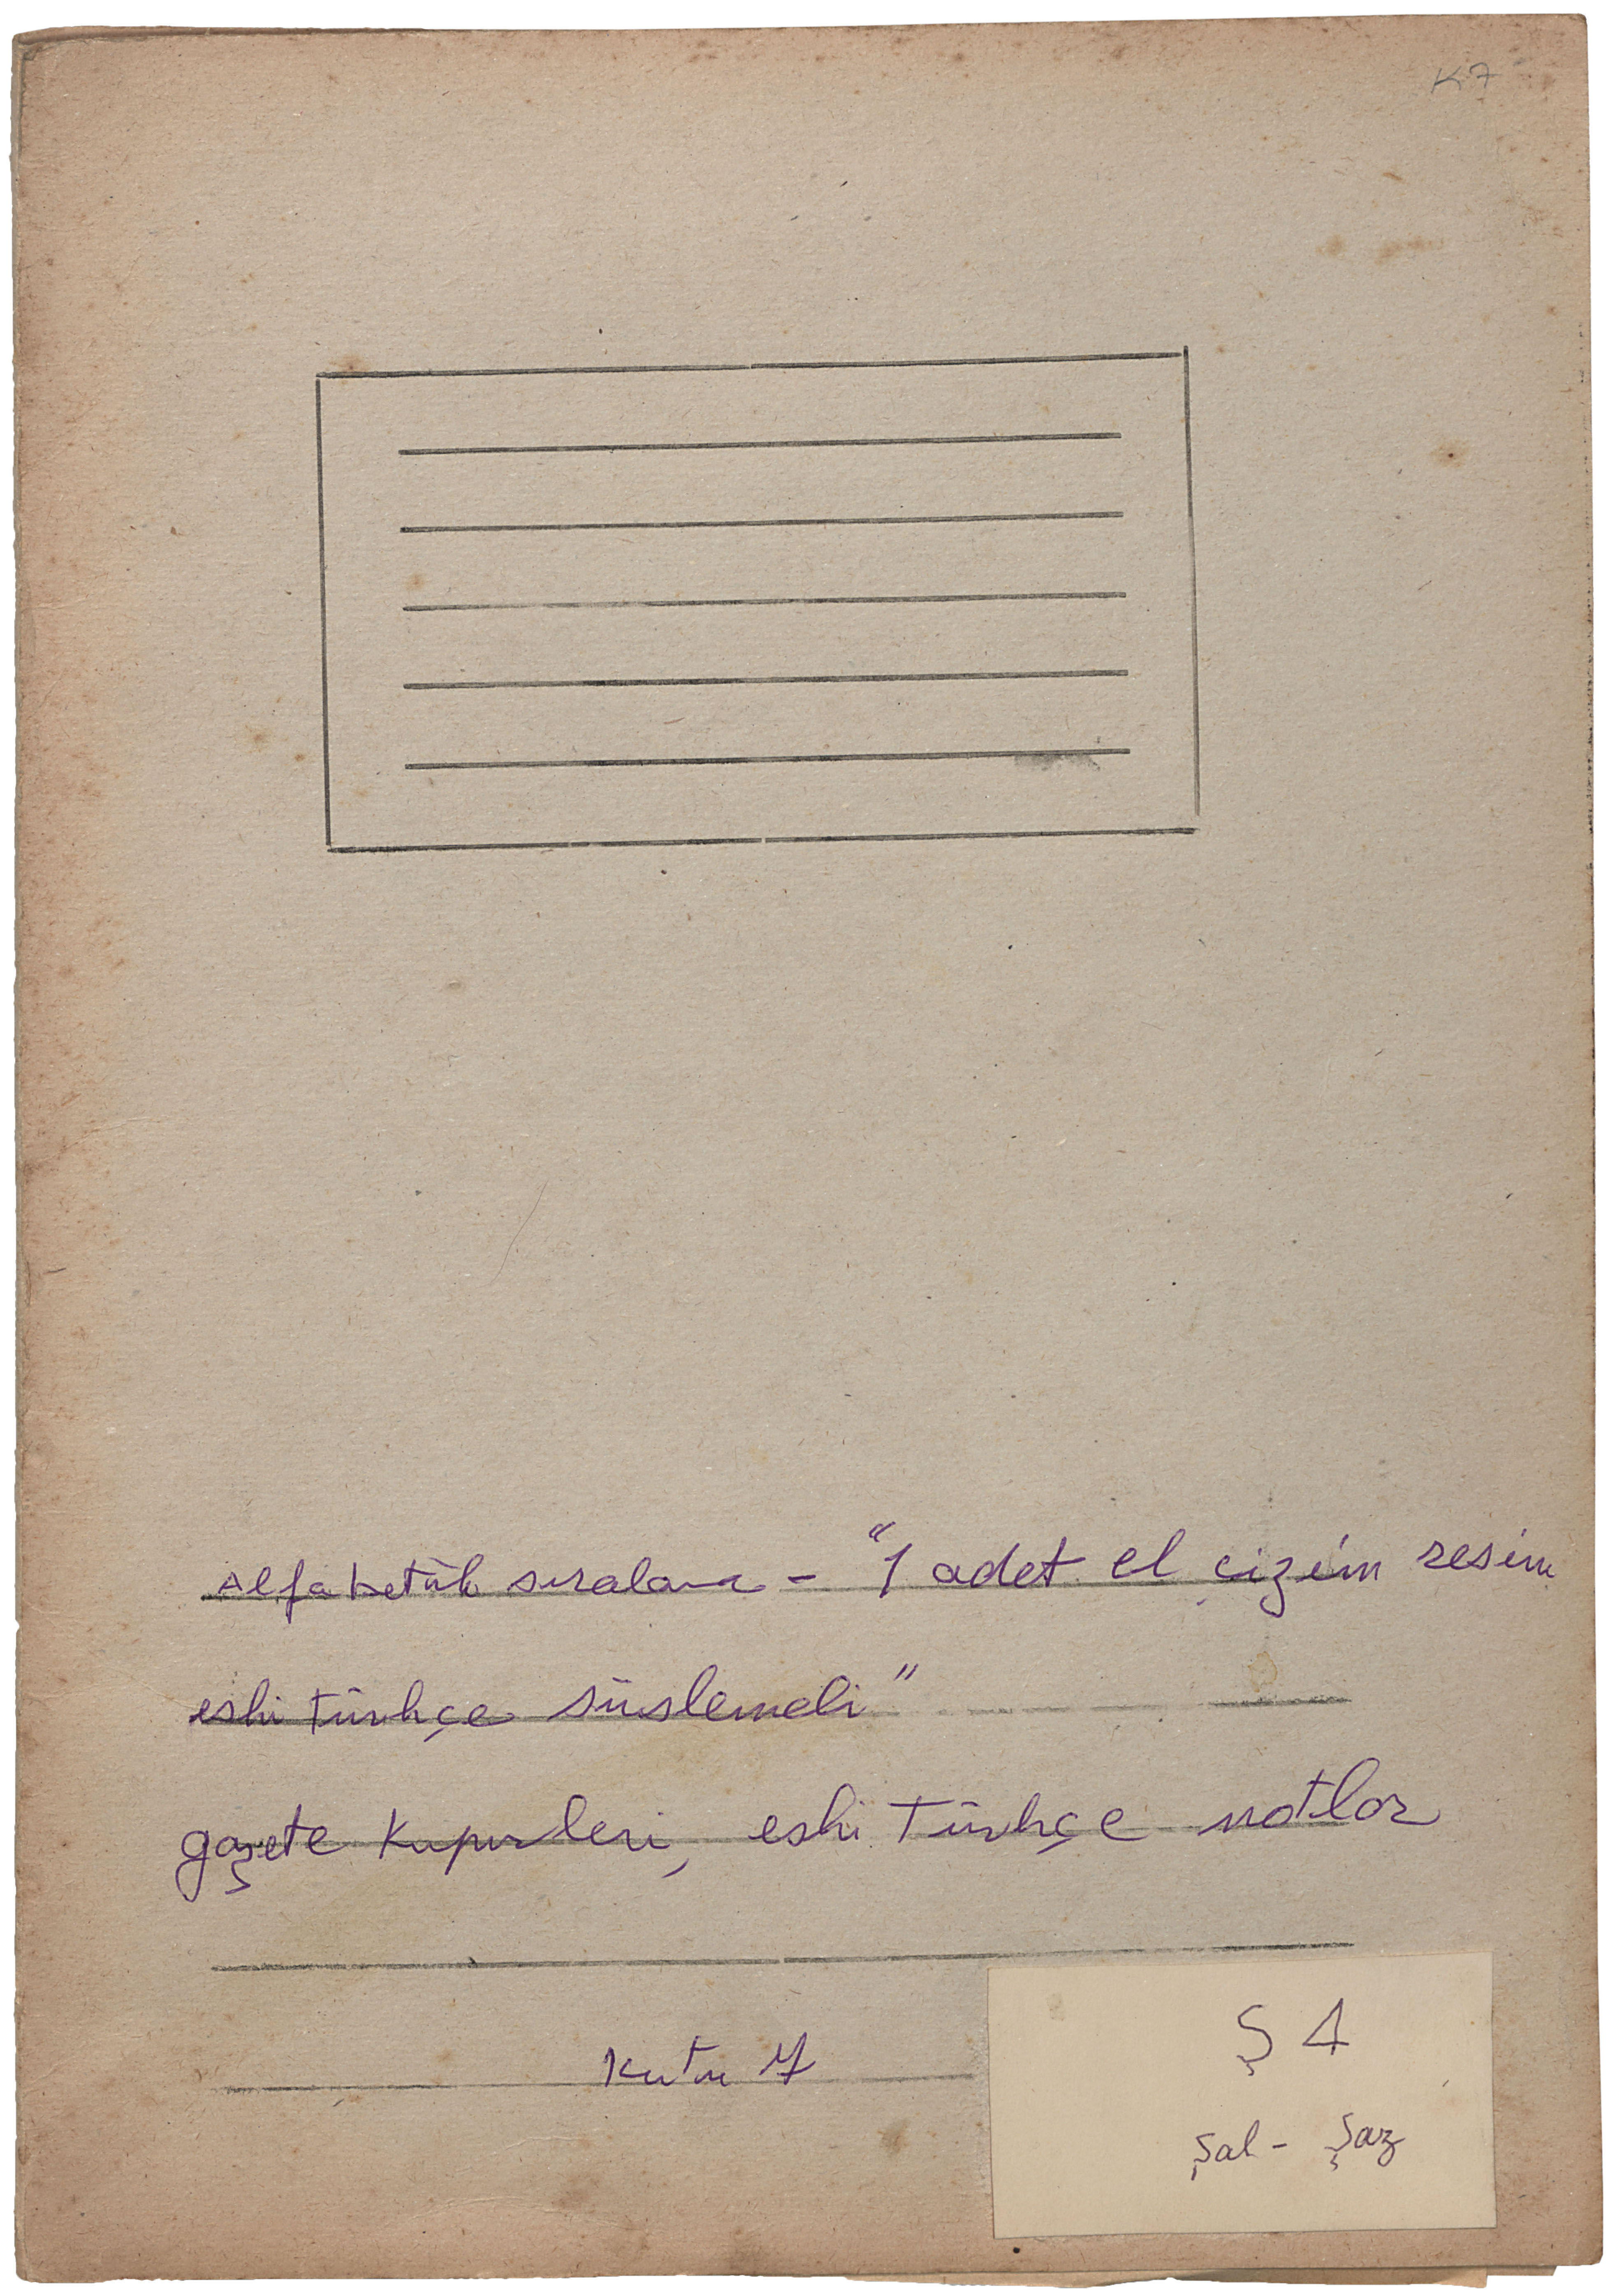 K7
Alfabetik sıralama - "1 adet el çizim resim
eski türkçe süslemeli"
gazete kupürleri, eski Türkçe notlar
Kutu 7
Ş 4
Şal - Şaz